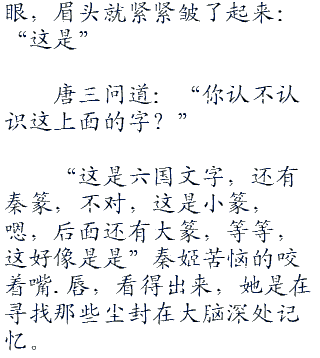 眼，眉头就紧紧皱了起来：
“这是”
唐三问道：“你认不认
识这上面的字？”
“这是六国文字，还有
秦篆，不对，这是小篆，
嗯，后面还有大篆，等等，
这好像是是”秦姬苦恼的咬
着嘴.唇，看得出来，她是在
寻找那些尘封在大脑深处记
忆。